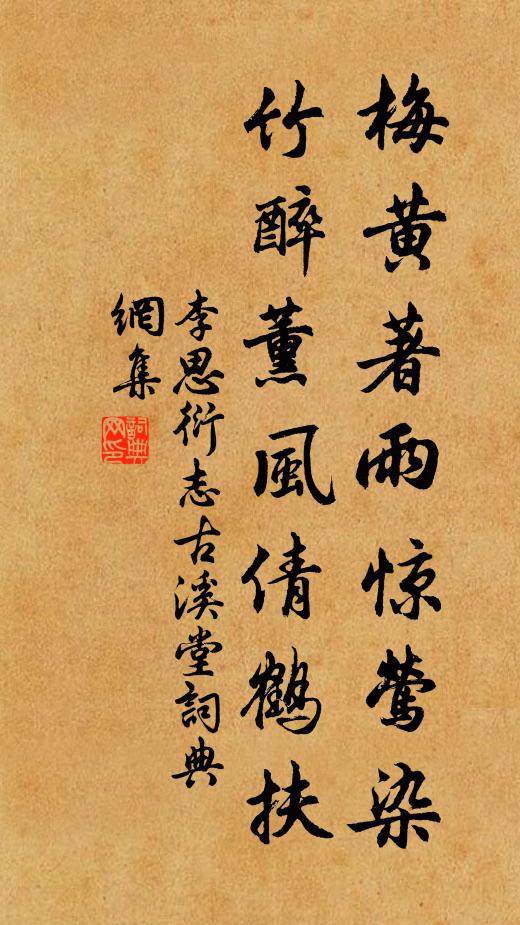 梅黄著雨惊莺染
竹醉薰風倩鶴扶
李思衍志古溪堂詞典
網集
詞典
网印